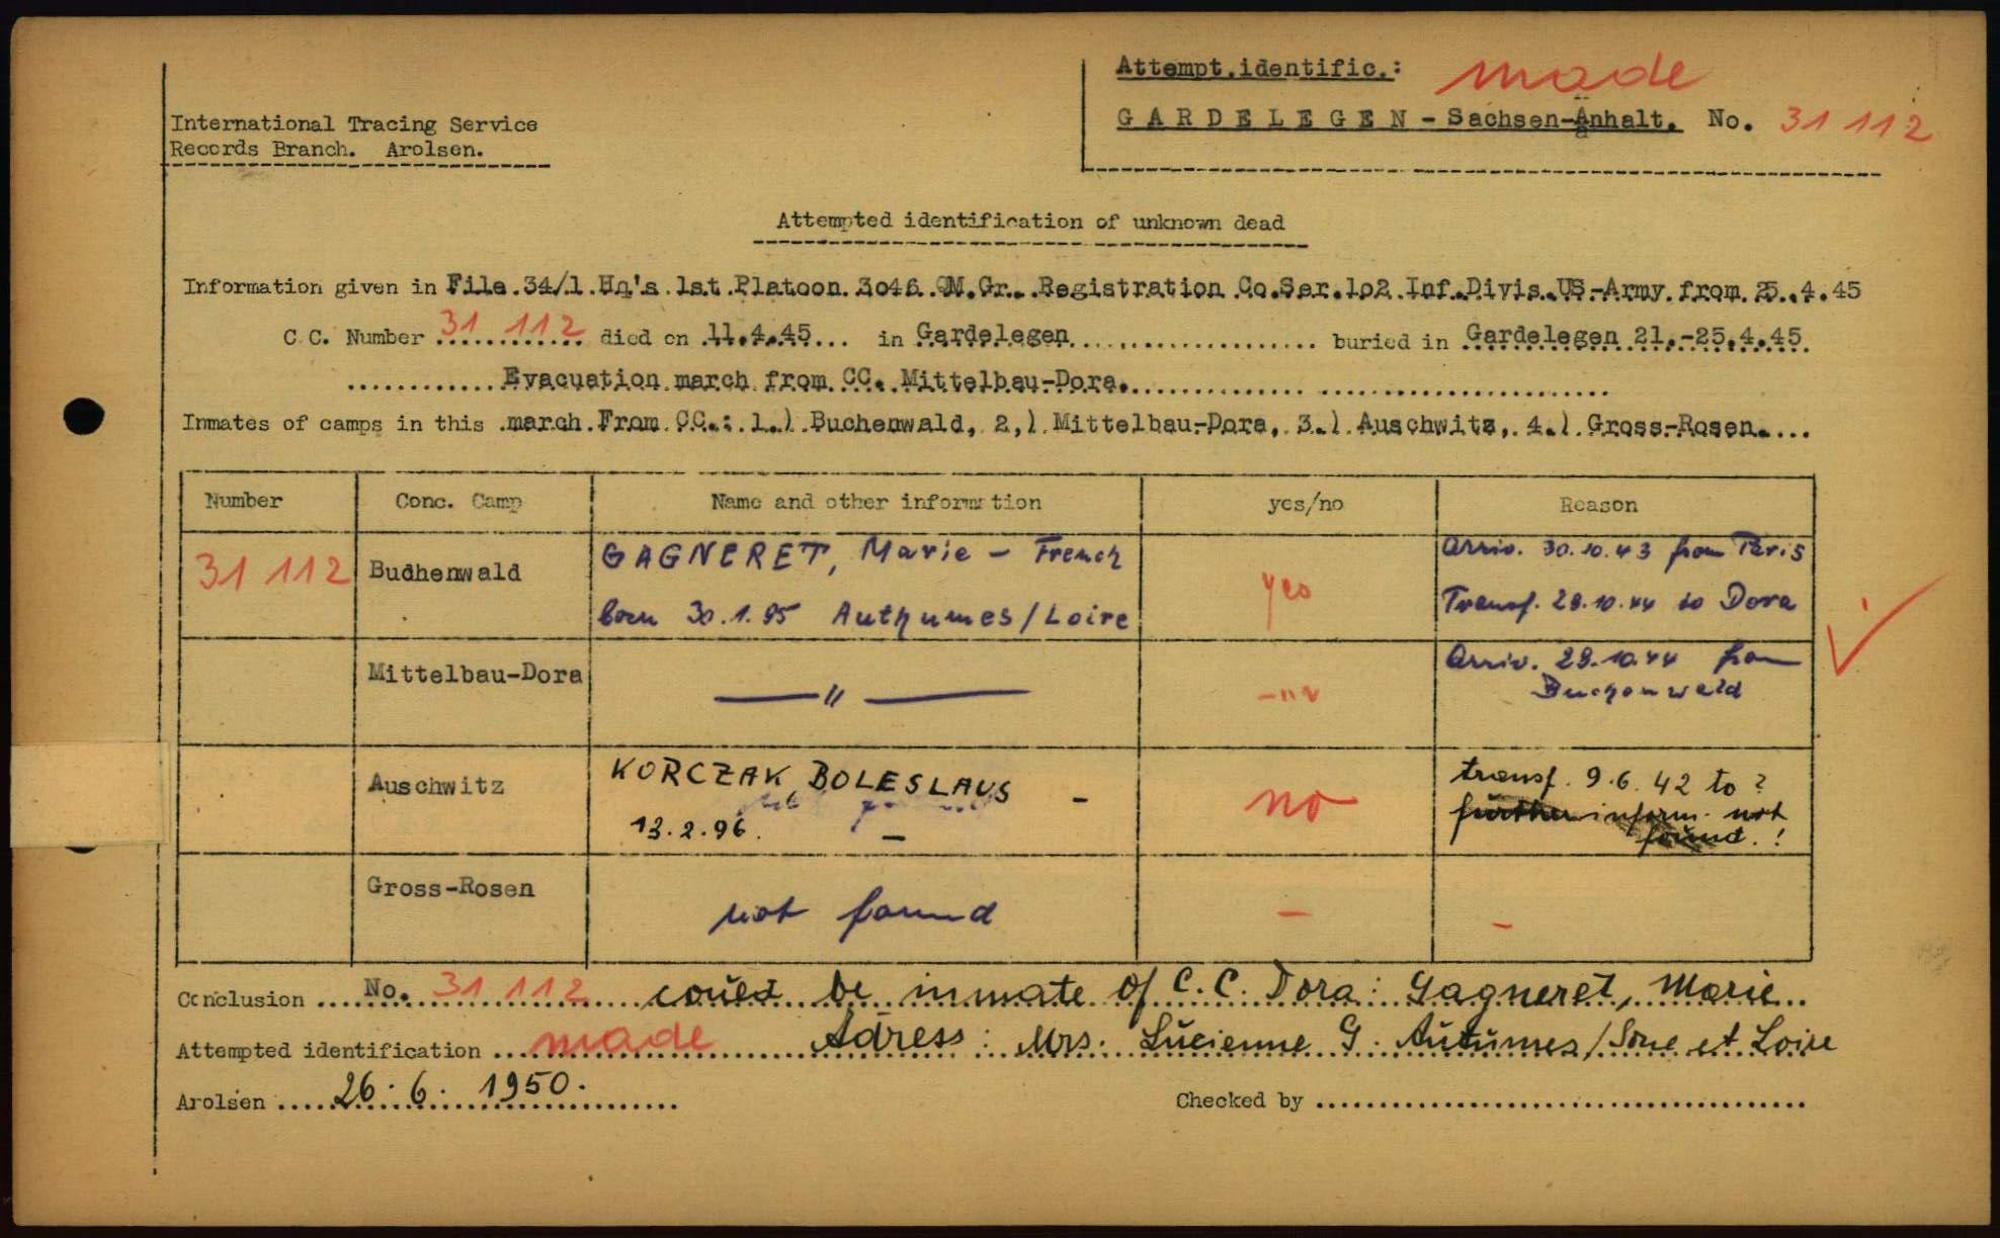 Attempt.identific.: made
International Tracing Service
GARDELEGEN - Sachsen-Anhalt. No. 31 112
Records Branch. Arolsen.
Attempted identification of unknown dead
Information given in File.34/1.Hq's.1st.Platoon.3046.QM.Gr..Registration.Co.Ser.1o2.Inf.Divis.US-Army.from.25..4.45
C.C. Number 31 112 died on 11.4.45... in Gardelegen.................... buried in Gardelegen 21.-25.4.45.
............Evacuation march from CC. Mittelbau-Dora...............................
Inmates of camps in this march.From.CC.:.1.).Buchenwald, 2,) Mittelbau-Dora, 3.) Auschwitz, 4.) Gross-Rosen....
Number Conc. Camp Name and other information yes/no Reason
31 112 Budhenwald GAGNERET, Marie - French yes Arriv. 30.10.43 from Paris
born 30.1.95 Authumes/Loire Transf. 28.10.44 to Dora
Mittelbau-Dora —— " —— -"- Arriv. 28.10.44 from
Buchenwald
Auschwitz KORCZAK, BOLESLAUS - no transf. 9.6.42 to ?
13.2.96. - further inform. not
found.!
Gross-Rosen not found - -
Conclusion ....No. 31 112 could be inmate of C.C. Dora: Gagneret, Marie..
Attempted identification ...made Adress: Mrs. Lucienne G. Autumes/Sone et Loire
Arolsen ....26.6.1950. Checked by ......................................